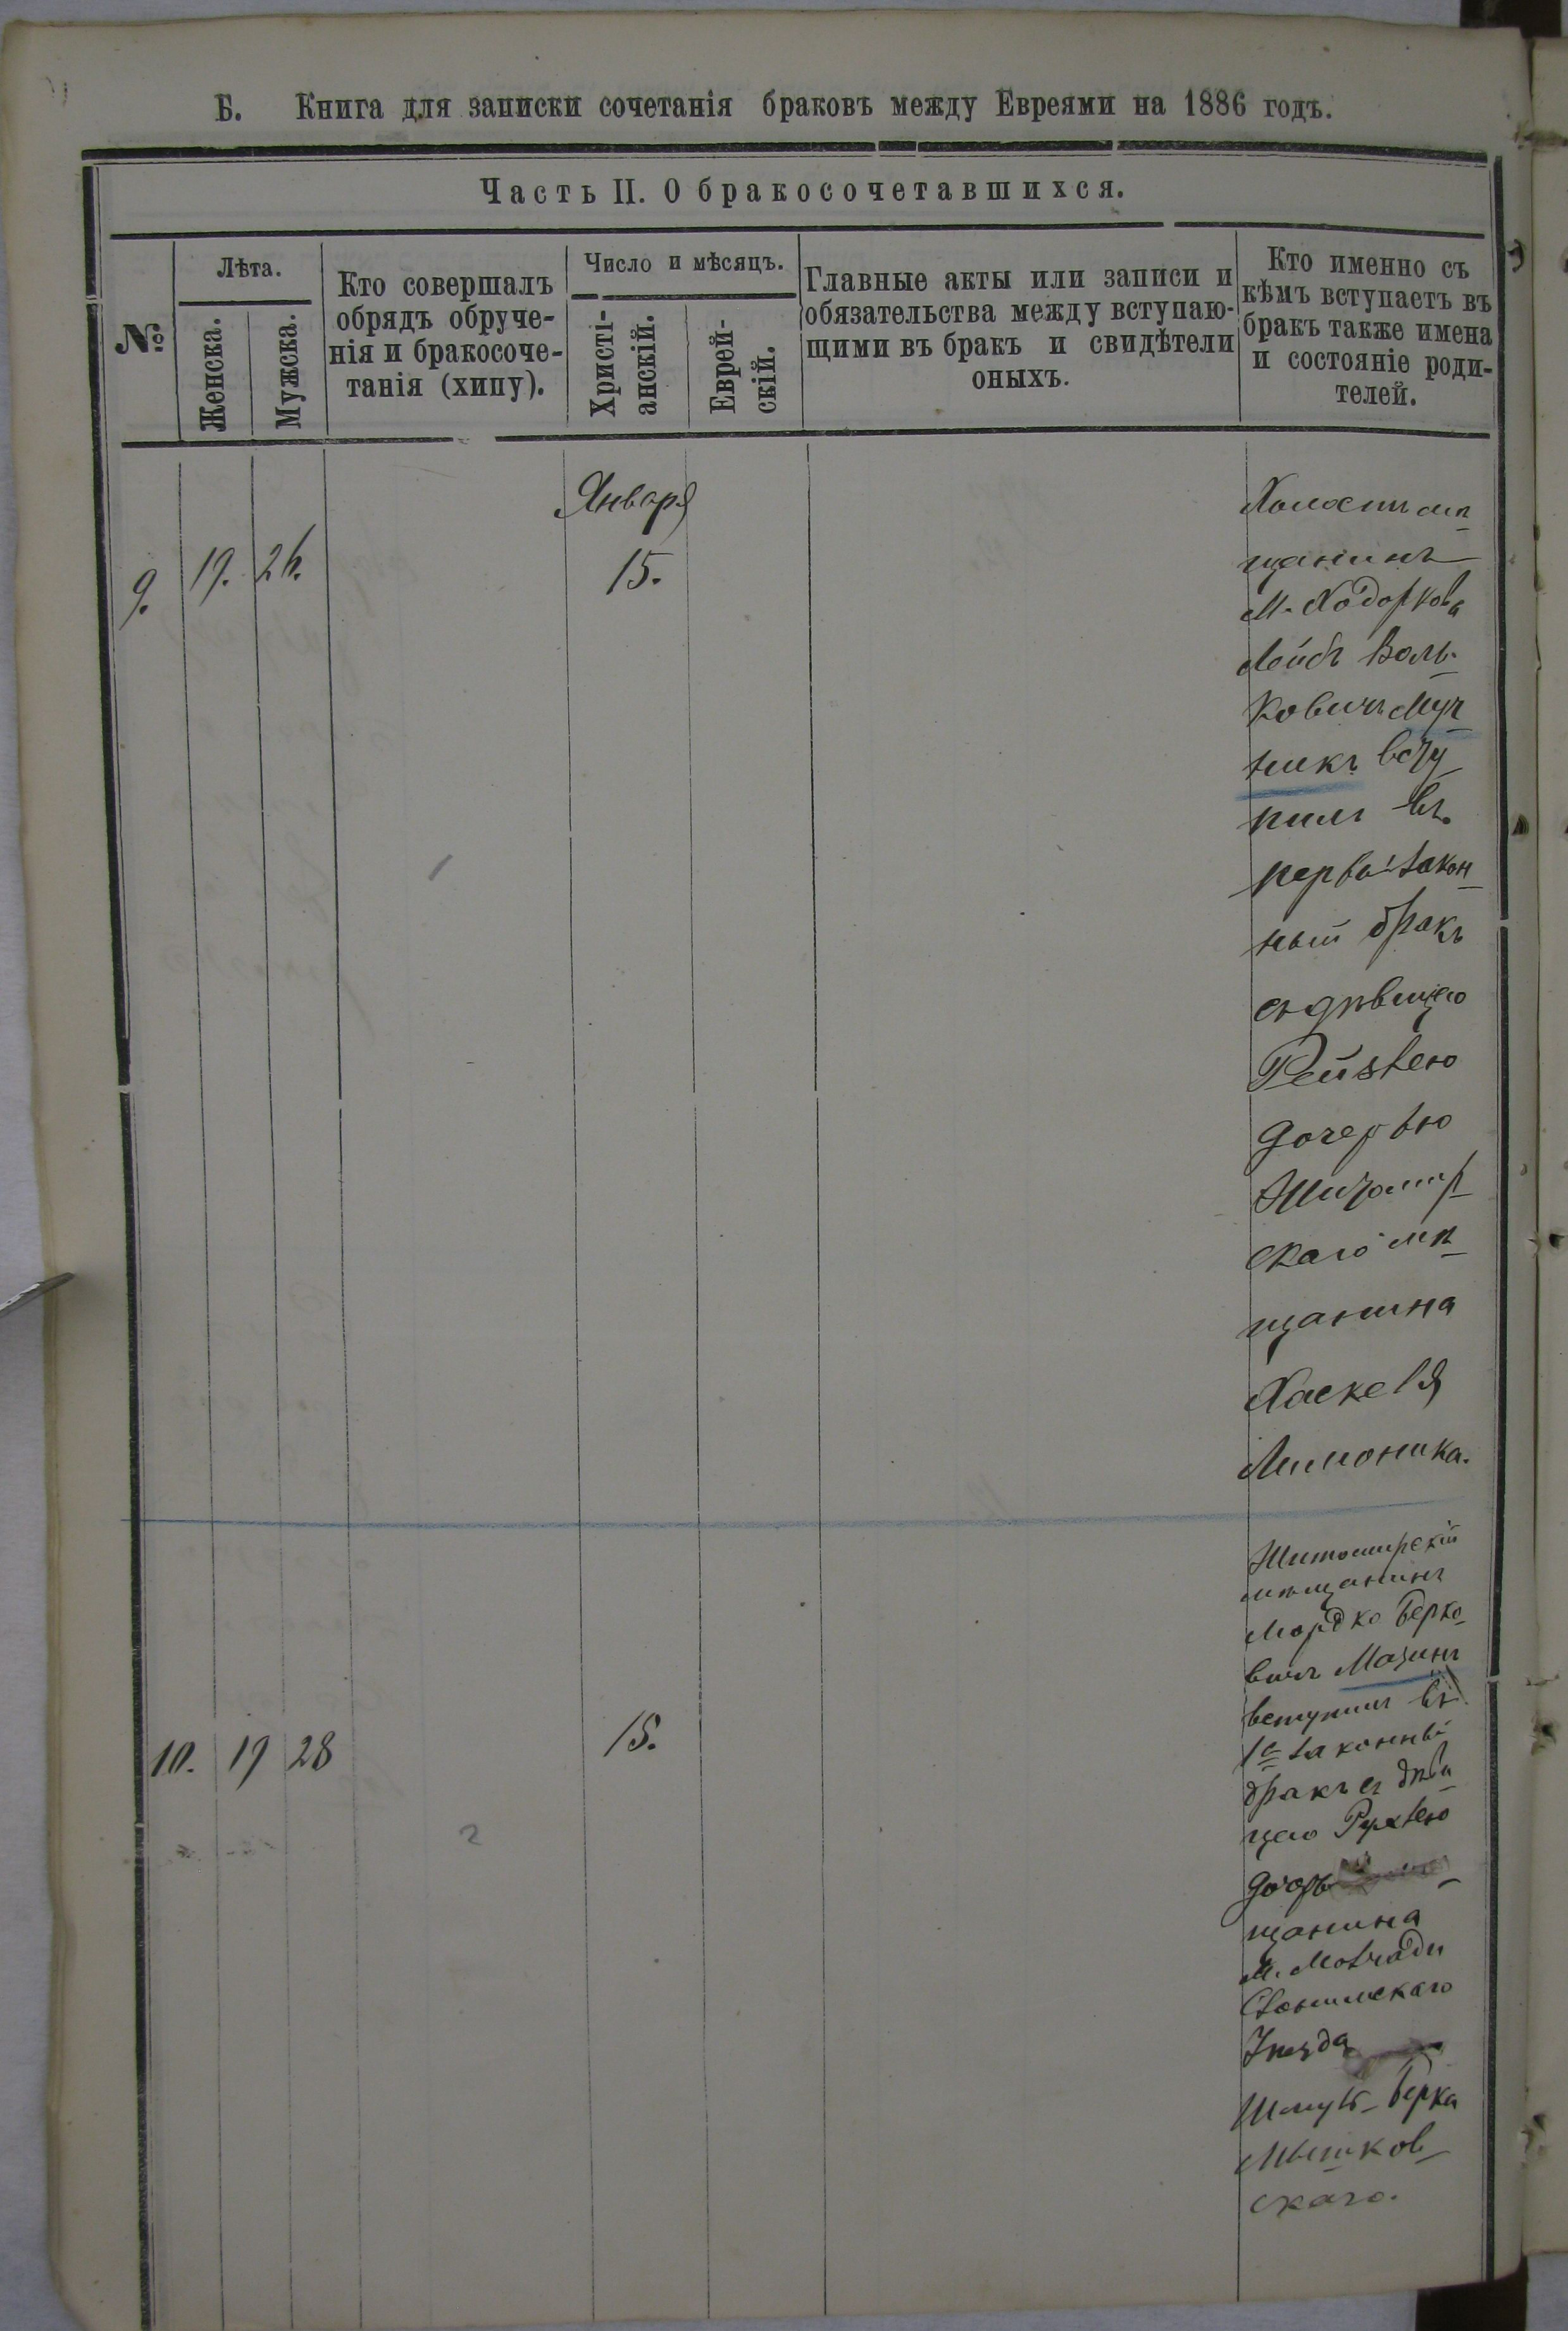 Б. Книга для записки сочетанія браковъ между Евреями на 1886 годъ.
Часть II. О бракосочетавшихся.
№
Лѣта.
Женска.
Мужска.
Кто совершалъ
обрядъ обруче-
нія и бракосоче-
танія (хипу).
Число и мѣсяцъ.
Христі-
анскій.
Еврей-
скій.
Главные акты или записи и
обязательства между вступаю-
щими въ бракъ и свидѣтели
оныхъ.
Кто именно съ
кѣмъ вступаетъ въ
бракъ также имена
и состояніе роди-
телей.
Января
9. 19. 26. 15.
Холостой мѣ-
щанинъ
М. Ходоркова
Лейбъ Воль-
ковичъ Муч-
никъ всту-
пилъ въ
первый закон-
ный бракъ
съ дѣвицею
Рейзею
дочерью
Житомир-
скаго мѣ-
щанина
Хаскеля
Лимоника.
10. 19 28 15.
Житомирскій
мѣщанинъ
Мордко Берко-
вичъ Мазинъ
вступилъ въ
1й законный
бракъ съ дѣви-
цею Рухлею
дочерь
щанина
М.
Слонимскаго
Уѣзда
Берка
Мышков-
скаго.